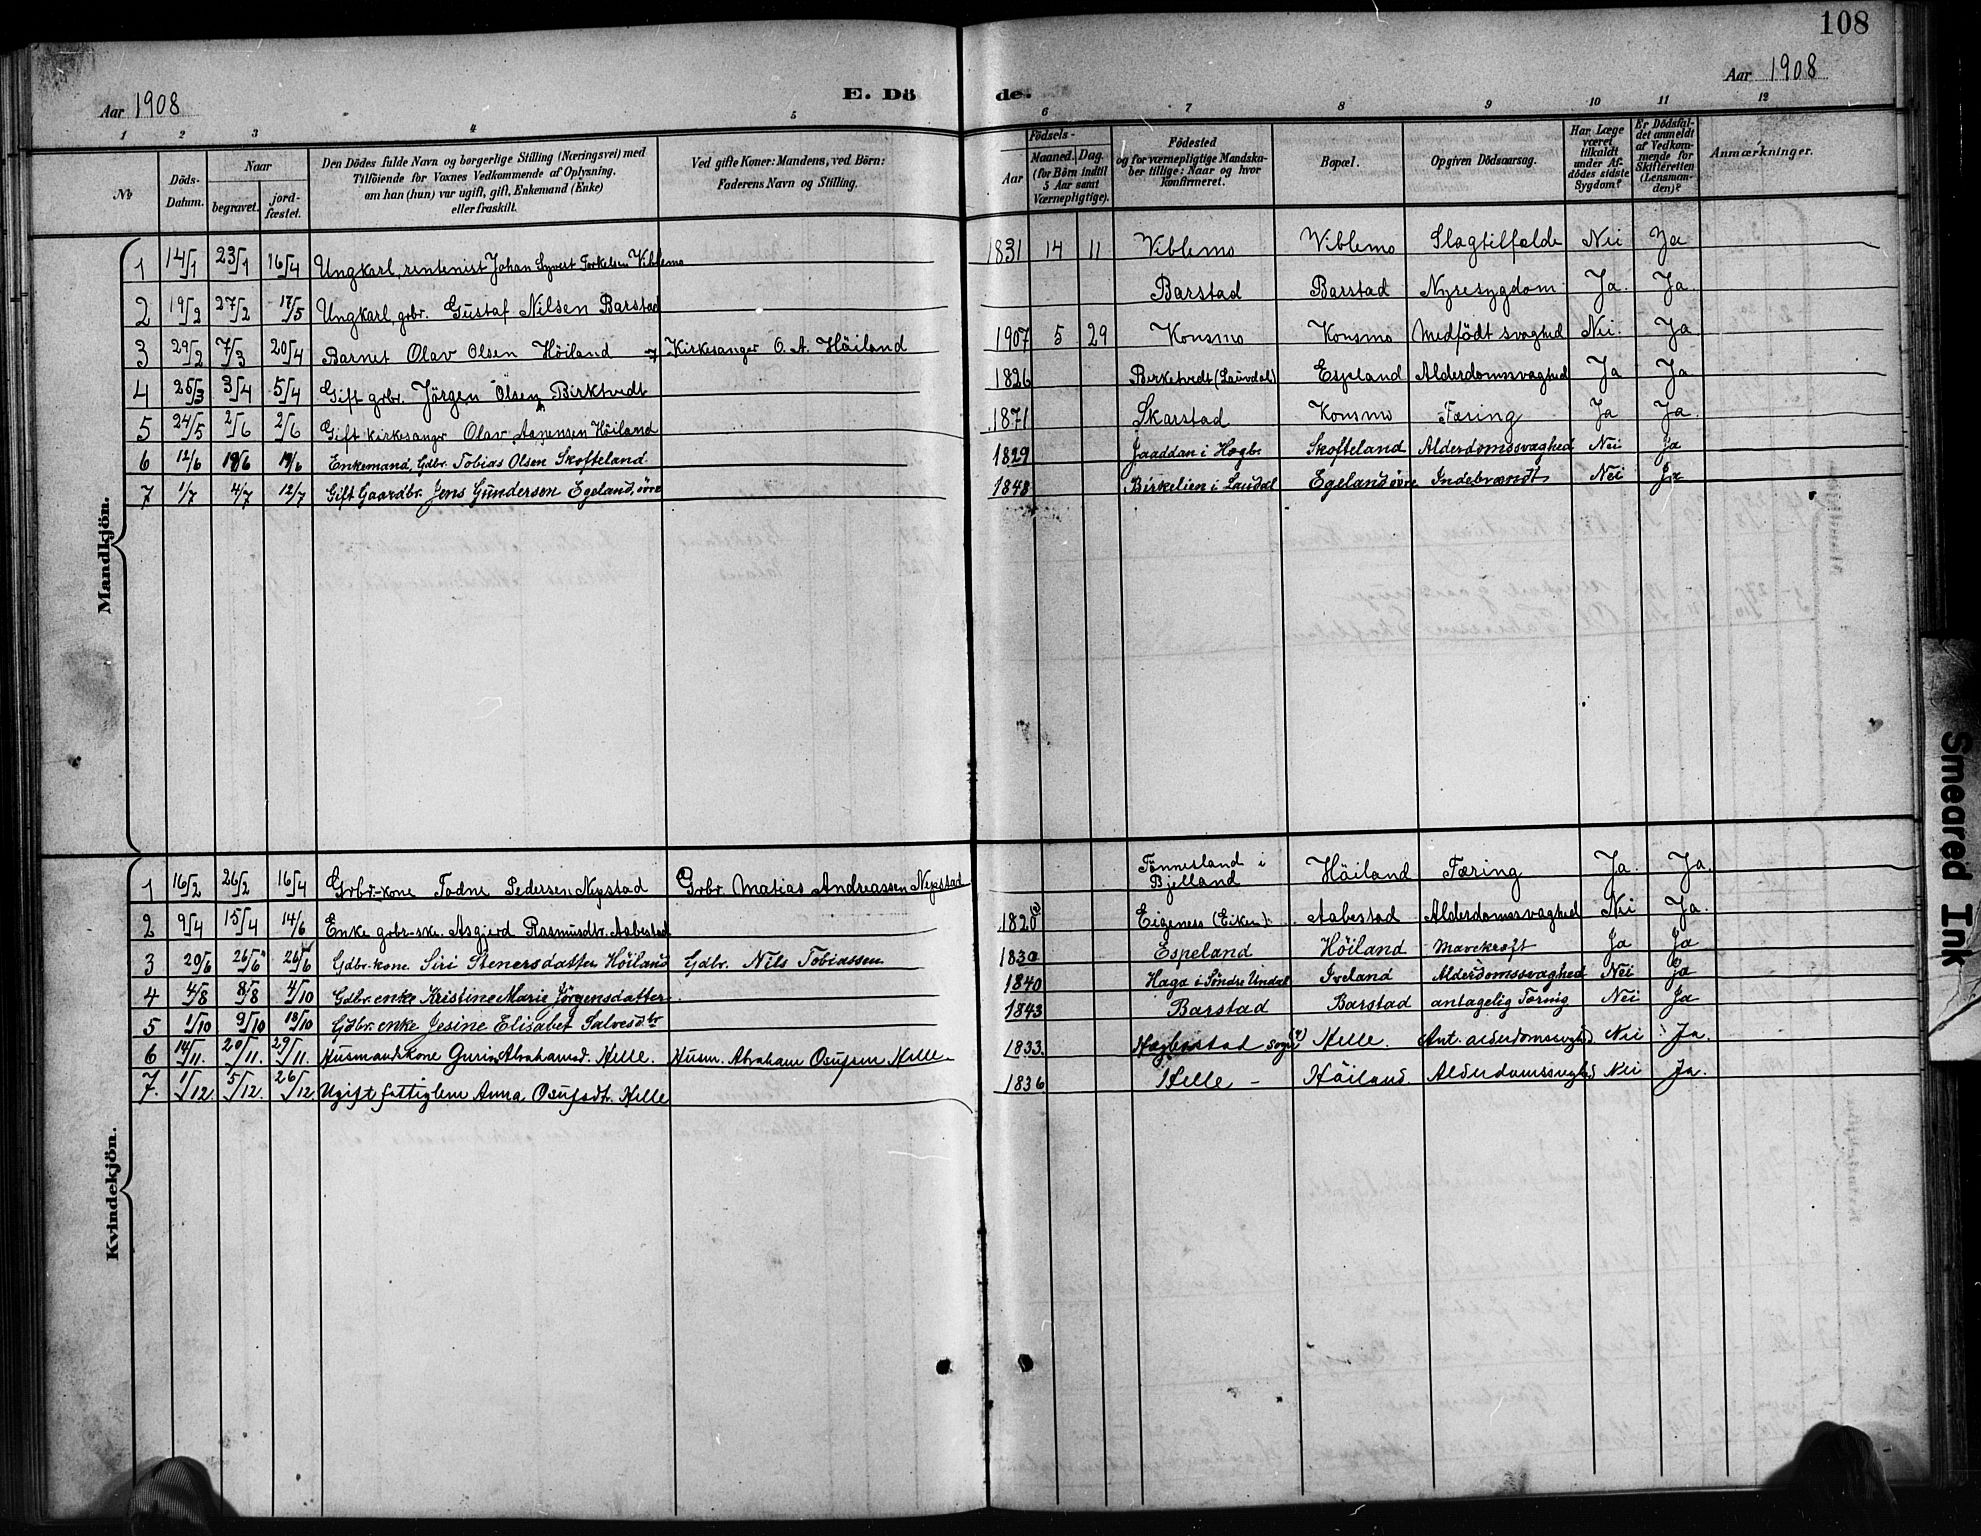 108
Aar 1908
E. Dö
de.
Aar 1908
1 2 3 4 5 6 7 8 9 10 11 12
No
Döds-Datum.
Naar
begravet.
jord-fæstet.
Den Dödes fulde Navn og borgerlige Stilling (Næringsvei) med
Tilföiende for Voxnes Vedkommende af Oplysning,
om han (hun) var ugift, gift, Enkemand (Enke)
eller fraskilt.
Ved gifte Koner: Mandens, ved Börn:
Faderens Navn og Stilling.
Födsels-
Aar
Maaned. Dag.
(for Börn indtil
5 Aar samt
Værnepligtige).
Födested
og for værnepligtige Mandska-
ber tillige: Naar og hvor
konfirmeret.
Bopæl.
Opgiven Dödsaarsag.
Har Læge
været
tilkaldt
under Af-
dödes sidste
Sygdom?
Er Dödsfal-
det anmeldt
af Vedkom-
mende for
Skifteretten
(Lensman-
den)?
Anmærkninger.
Mandkjön.
1 14/1 23/1 16/4 Ungkarl, rentenist Johan Syvert Torkelsen Viblemo 1831 14 11 Viblemo Viblemo Slagtilfælde Nei Ja
2 19/2 27/2 17/5 Ungkarl, grbr. Gustaf Nilsen Barstad Barstad Barstad Nyresygdom Ja. Ja.
3 29/2 7/3 20/4 Barnet Olav Olsen Höiland Kirkesanger O. A. Häiland 1907 5 29 Konsmo Konsmo Medfödt svaghed Nei. Ja.
4 25/3 3/4 5/4 Gift grbr. Jörgen Olsen Birktvedt 1826 Birketvedt (Lauvdal) Espeland Alderdomssvaghed Ja Ja
5 24/5 2/6 2/6 Gift Kirkesanger Olav Aanensen Höiland 1871 Skarstad Konsmo Tæring Ja Ja.
6 12/6 19/6 19/6 Enkemand, Gdbr. Tobias Olsen Skofteland. 1829 Jaaddan i Hægb. Skofteland Alderdomssvaghed Nei Ja
7 1/7 4/7 12/7 Gift Gaardbr. Jens Gundersen Egeland, övre 1848 Birkelien i Laudal Egeland övre Indebrændt Nei Ja
Kvindekjön.
1 16/2 26/2 16/4 Grbr.-kone Todne Pedersen Nepstad Grbr. Matias Andreassen Nepstad Tönnesland i Bjelland Höiland Tæring Ja. Ja.
2 9/4 15/4 14/6 Enke grbr-ske. Asgjerd Rasmusdtr. Aabestad 1820 Eigeness (Eiken). Aabestad Alderdomssvaghed Nei Ja.
3 20/6 26/6 26/6 Gdbr-kone Siri Stenersdatter Höiland Gdbr. Nils Tobiassen 1830 Espeland Höiland Mavekræft Ja Ja
4 4/8 8/8 4/10 Gdbr. enke Kristine Marie Jörgensdatter 1840 Haga i Söndre Undal Iveland Alderdomssvaghed Nei Ja
5 1/10 9/10 18/10 Gdbr. enke Jesine Elisabet Salvesdtr 1843 Barstad Barstad antagelig Tæring Nei Ja
6 14/11. 20/11. 29/11. Husmandskone Gurin Abrahamsd. Helle. Husm. Abraham Osufsen Helle. 1833. Hægbostad sogn (?) Helle. Ant. alderdomssvaghed Nei Ja.
7. 1/12 5/12. 26/12 Ugift fattiglem Anna Osufsdt. Helle 1836 Helle - Häiland. Alderdomssvaghed Nei Ja.
Smeared Ink